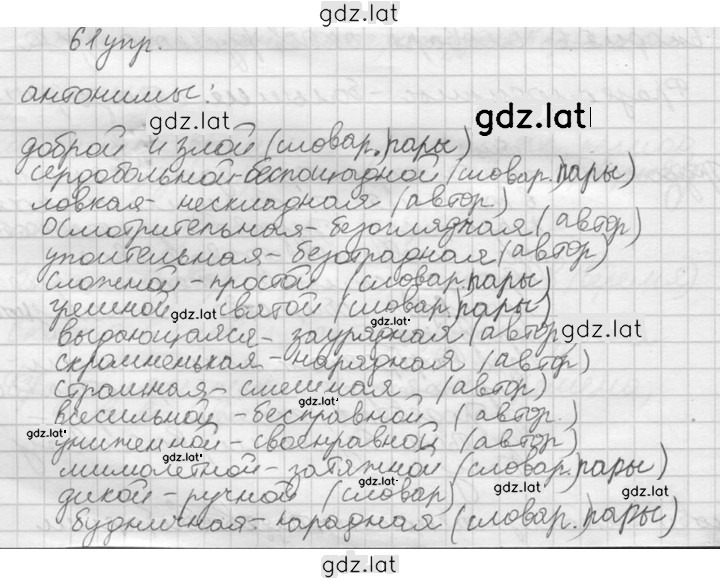 gdz.lat
61 упр.
антонимы:
gdz.lat
gdz.lat
доброй и злой (словар. пары)
сердобольной - беспощадной (словар. пары)
ловкая - нескладная (автор)
осмотрительная - безоглядная (автор)
упоительная - безотрадная (автор)
сложной - простой (словар. пары)
грешной gdz.lat святой (словар. пары)
gdz.lat
выдающаяся - заурядная (автор gdz.lat
скромненькая - нарядная (автор)
страшная - смешная (автор)
gdz.lat
всесильной - бесправной (автор.)
gdz.lat
униженной - своенравной (автор)
мимолетной - затяжной (словар. пары)
gdz.lat
gdz.lat
дикой - ручной (словар)
будничная - парадная (словар. пары)
gdz.lat